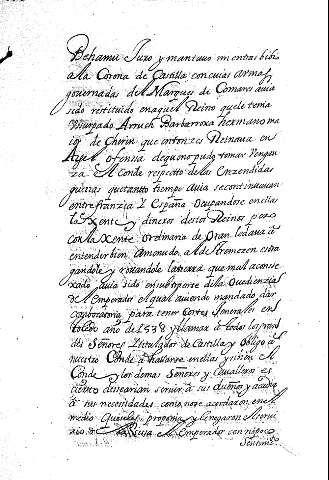 Behamu Juro y mantuvo mientras bibio
a la Corona de Castilla con cuias armas
governadas del Marques de Comares avia
sido restituido en aquel Reino que le tenia
Usurpado Arruch Barbarroxa hermano ma
ior de Cherin que entonzes Reinava en
Argel ofensa de que no pudo tomar Vengan
za. El Conde respecto de las Enzendidas
guerras que tanto tiempo avia se continuavan
entre franzia y España Ocupandose en ellas
la Xente y dineros destos Reinos pero
con la Xente Ordinaria de Oran le dava a
entender bien Amenudo, al de Tremezen estra
gandole y rozandole la tierra que mal aconse
xado avia sido en subtraerse de la Ovedienzia
del Emperador el qual aviendo mandado dar
convocatoria para tener Cortes Generales en
Toledo año de 1538 y llamar a todos los
des Señores y titulos de Castilla y Obligo a
nuestro Conde a hallarse en ellas y si bien el
Conde y los demas Señores y Cavalleros es
ciertto desearian servir a su dueño y acudir
a sus necesidades, como no se acordaron en el
medio que se les proponia y llegaron a
Emperador con
Sentim